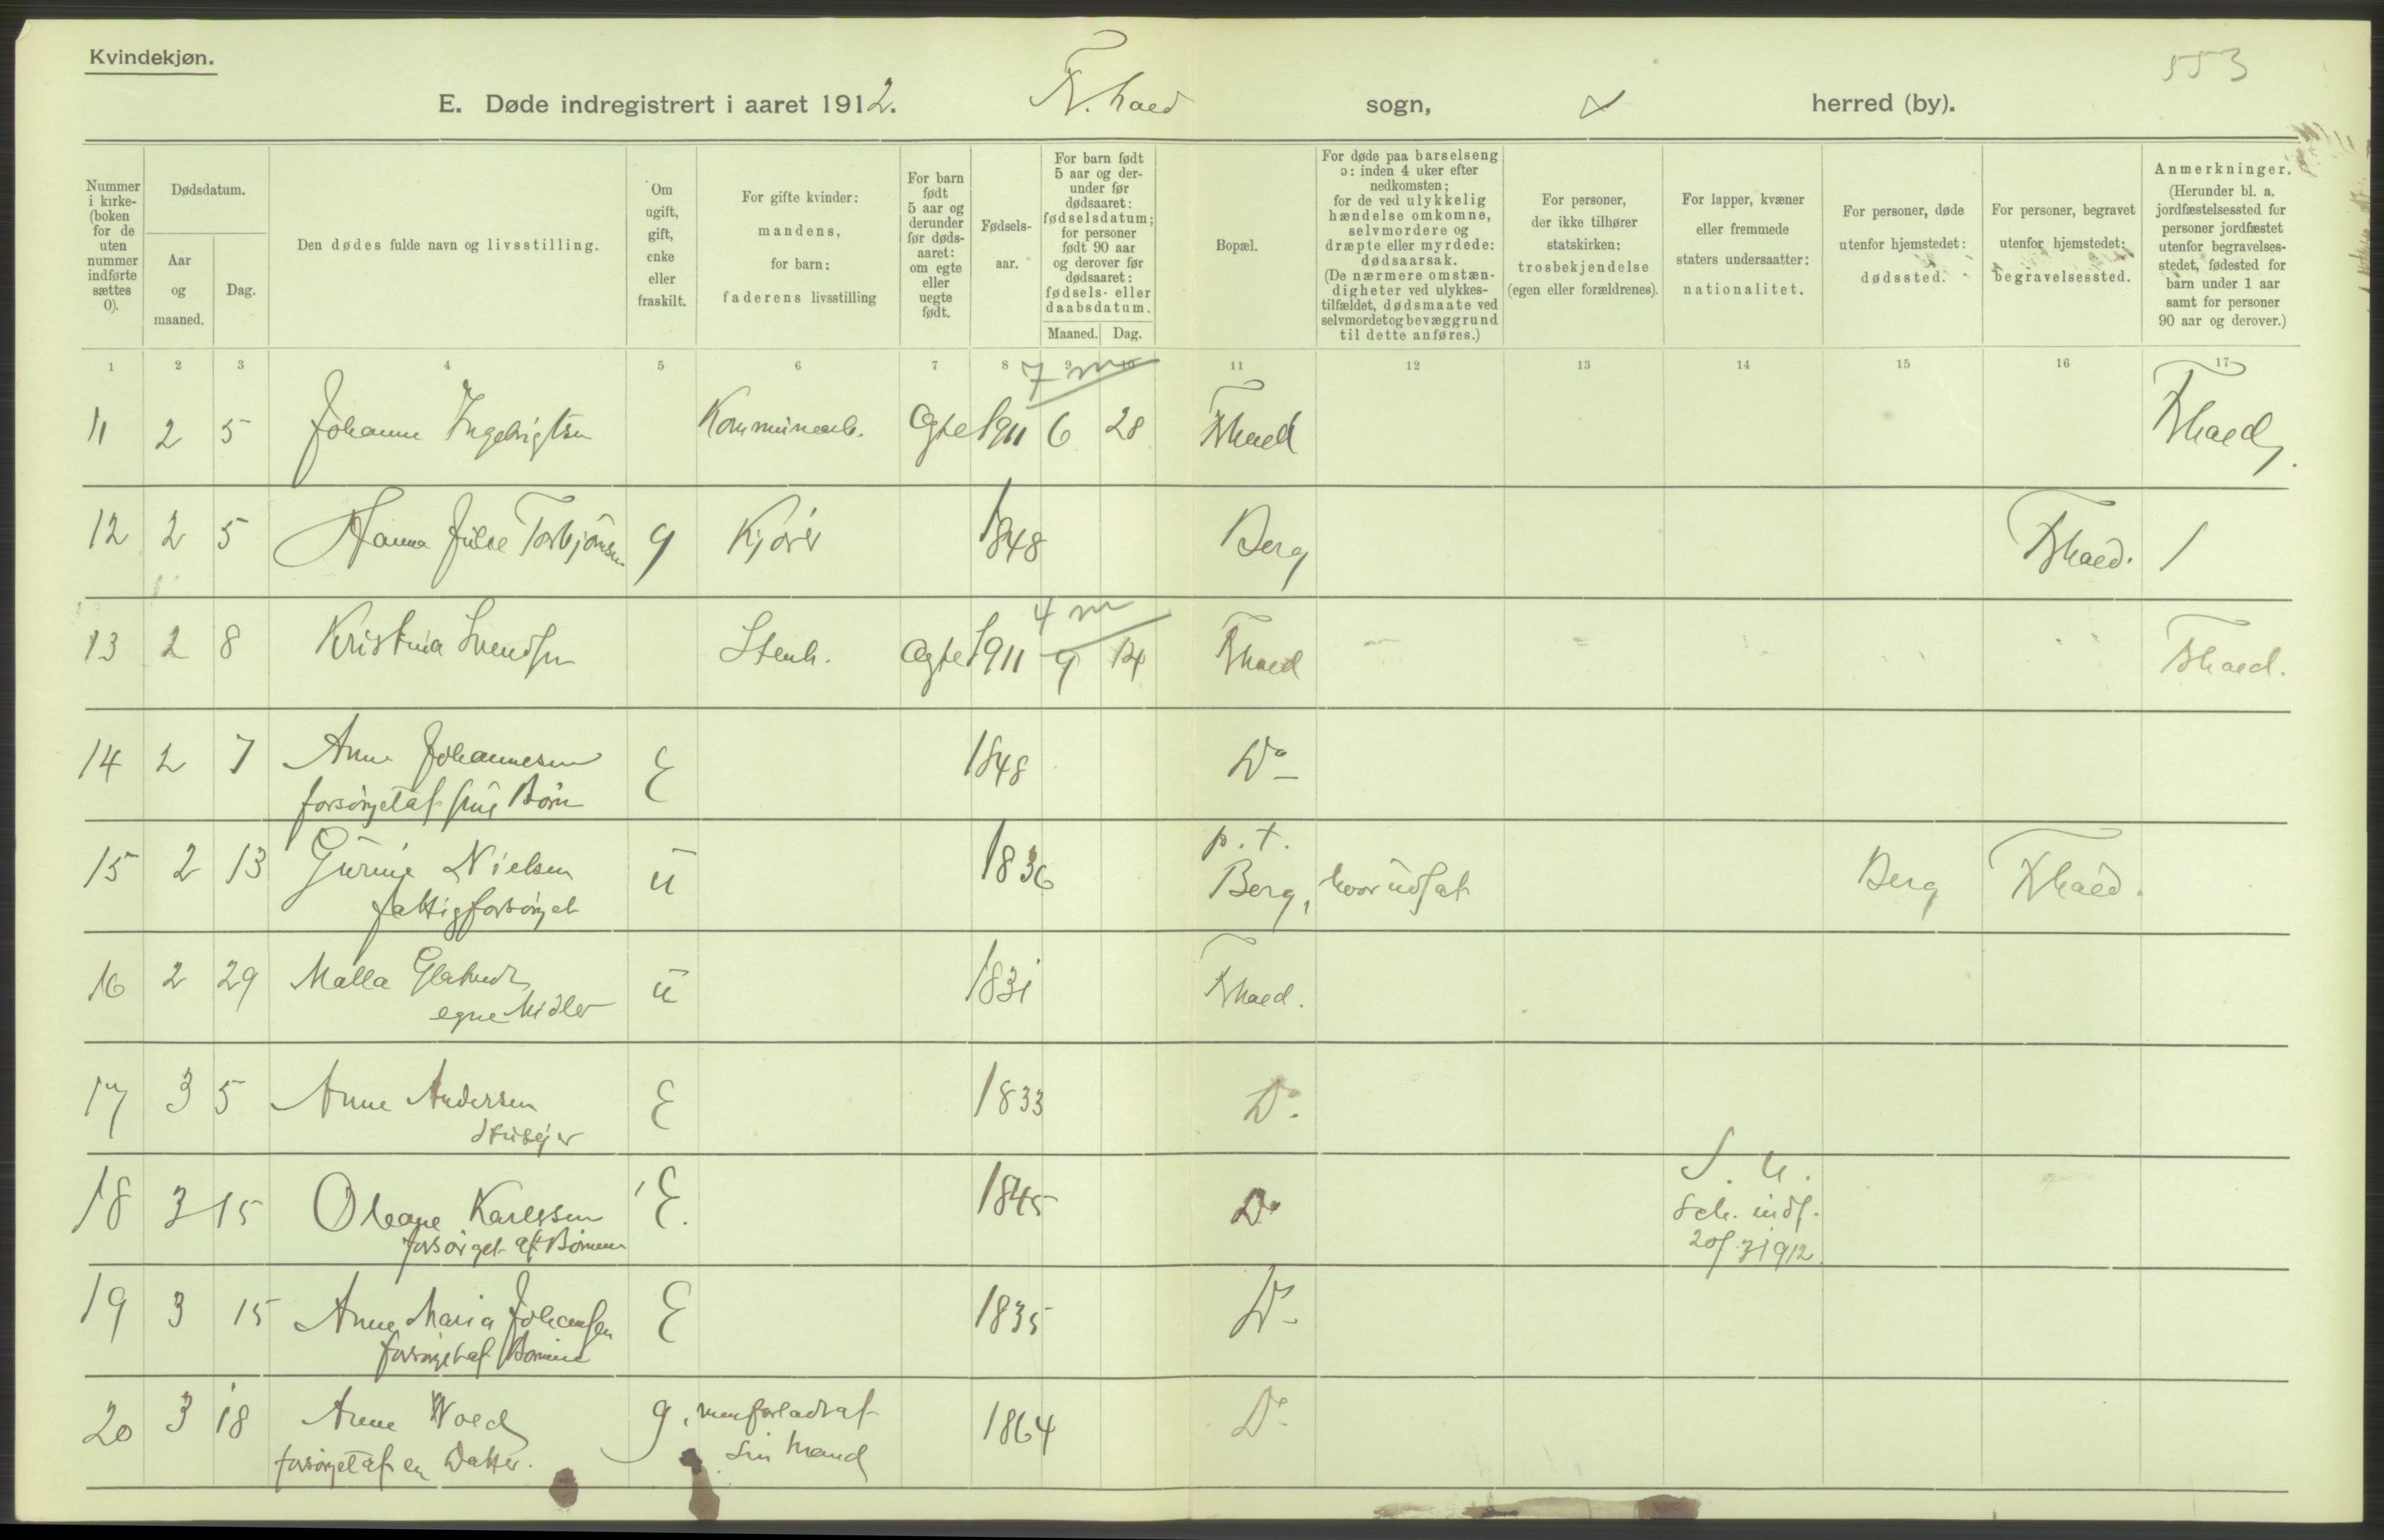 Kvindekjøn.
553
E. Døde indregistrert i aaret 1912. F.hald sogn, herred (by).
Nummer i kirke- (boken for de uten nummer indførte sættes 0).
Dødsdatum.
Aar og maaned.
Dag.
Den dødes fulde navn og livsstilling.
Om ugift, gift, enke eller fraskilt.
For gifte kvinder: mandens, for barn: faderens livsstilling
For barn født 5 aar og derunder før døds- aaret: om egte eller uegte født.
Fødsels- aar.
For barn født 5 aar og der- under før dødsaaret: fødselsdatum; for personer født 90 aar og derover før dødsaaret: fødsels- eller daabsdatum.
Maaned. Dag.
Bopæl.
For døde paa barselseng ɔ: inden 4 uker efter nedkomsten; for de ved ulykkelig hændelse omkomne, selvmordere og dræpte eller myrdede: dødsaarsak. (De nærmere omstæn- digheter ved ulykkes- tilfældet, dødsmaate ved selvmordet og bevæggrund til dette anføres.)
For personer, der ikke tilhører statskirken: trosbekjendelse (egen eller forældrenes).
For lapper, kvæner eller fremmede staters undersaatter: nationalitet.
For personer, døde utenfor hjemstedet: dødssted.
For personer, begravet utenfor hjemstedet: begravelsessted.
Anmerkninger. (Herunder bl. a. jordfæstelsessted for personer jordfæstet utenfor begravelses- stedet, fødested for barn under 1 aar samt for personer 90 aar og derover.)
1 2 3 4 5 6 7 8 9 10 11 12 13 14 15 16 17
7 m
11 2 5 Johanne Ingebrigtsen Kommunearb. Ægte 1911 6 28 Fhald Fhald.
12 2 5 Hanna Julie Torbjörnsen g Kjører 1848 Berg Fhald. 1
4 m
13 2 8 Kristina Svendsen Stenh. Ægte 1911 9 14 Fhald Fhald.
14 2 7 Anne Johannesen E 1848 Do
forsörget af sine Börn
p. t.
15 2 13 Gurine Nielsen u 1836 Berg, hvor udsat Berg Fhald.
fattigforsörget
16 2 29 Malla u 1831 Fhald.
egne Midler
17 3 5 Anne Andersen E 1833 Do
Husejer
S. U.
18 3 15 Oleane Karlssen E. 1845 Do Sch. inds.
forsörget af Börnene 20/3 1912
19 3 15 Anne Maria Johansen E 1835 Do
forsörget af Börnene
20 3 18 Anne g, men forladt af 1864 Do
forsörget af en Datter. sin Mand